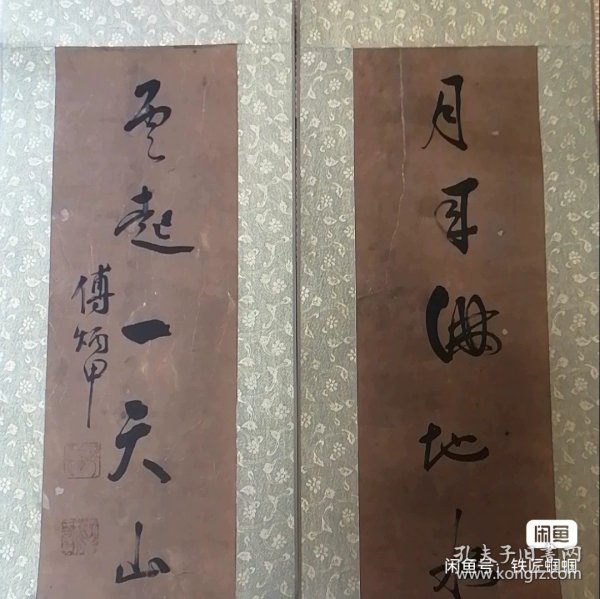 月来满地水
云起一天山
傅炳甲
闲鱼
孔夫子旧书网
闲鱼号：铁匠蝈蝈
www.kongfz.com